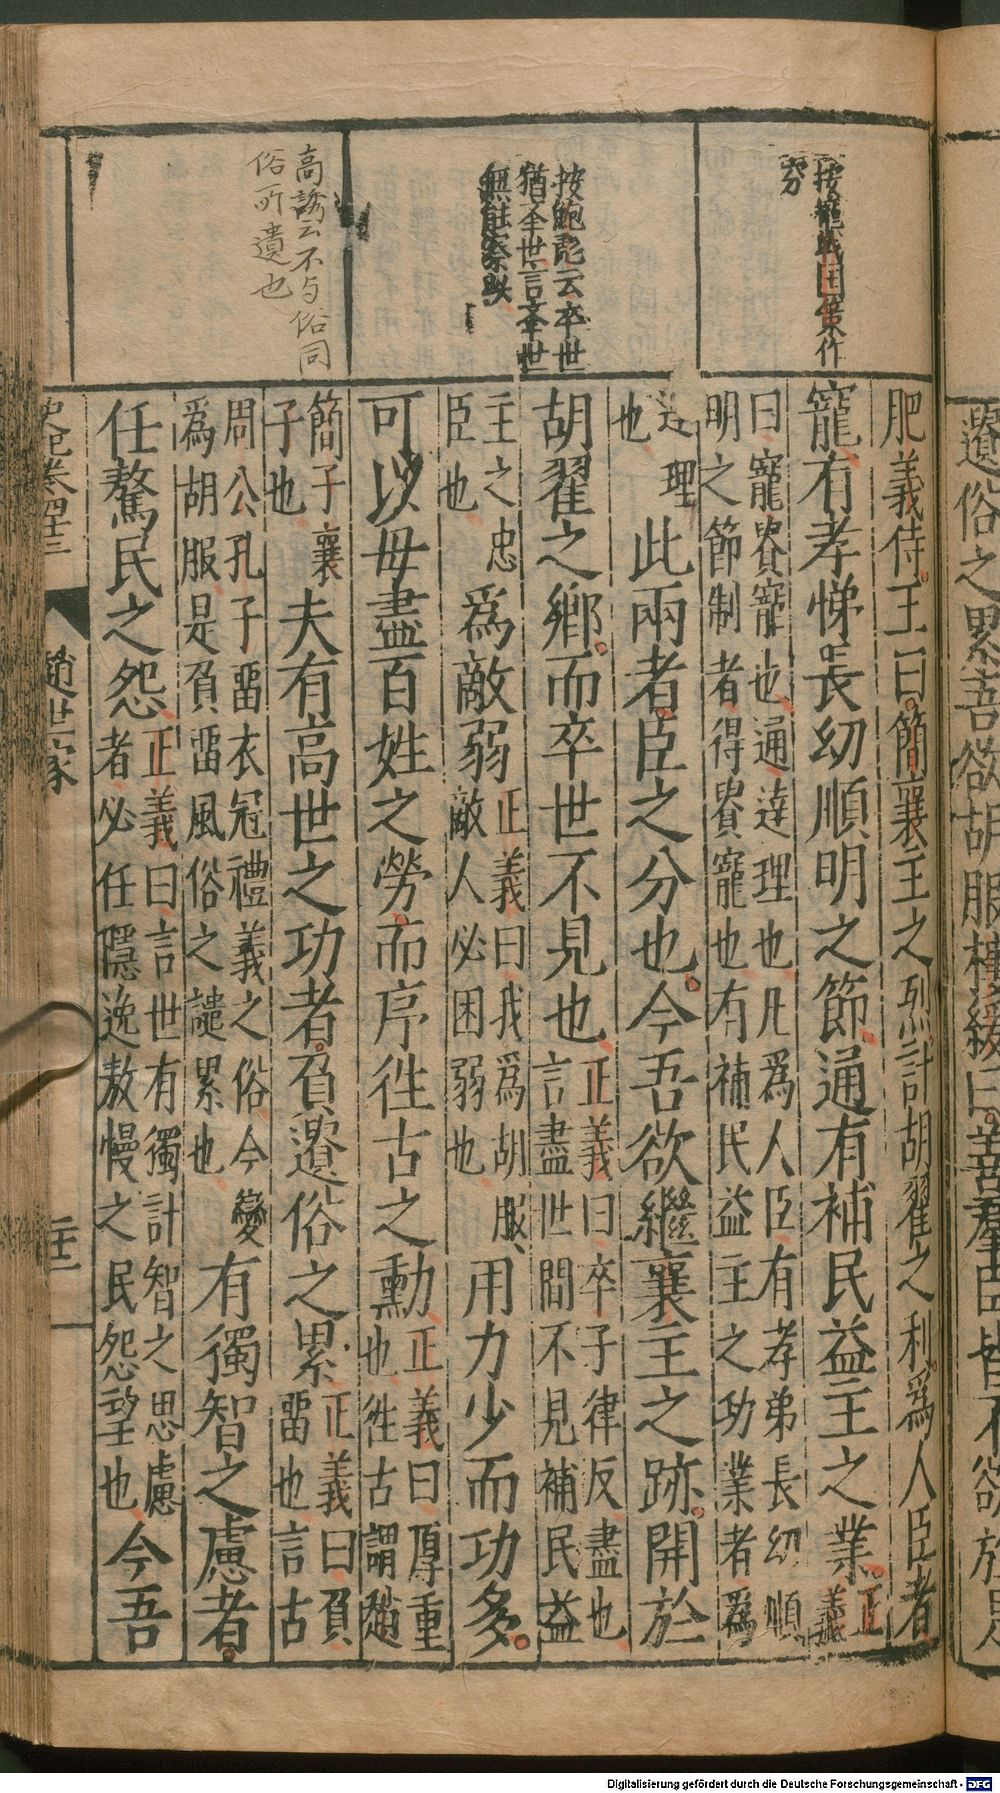 按寵戰國策作
窮
按鮑彪云卒世
猶舉世言舉世
無能察此
高誘云不与俗同
俗所遺也
肥義侍王曰簡襄主之烈計胡翟之利爲人臣者
寵有孝悌長幼順明之節通有補民益主之業正義
曰寵貴寵也通達理也凡爲人臣有孝弟長幼順
明之節制者得貴寵也有補民益主之功業者爲
達理
也
此兩者臣之分也今吾欲繼襄主之跡開於
胡翟之鄉而卒世不見也正義曰卒子律反盡也
言盡世間不見補民益
主之忠
臣也
爲敵弱正義曰我爲胡服
敵人必困弱也
用力少而功多
可以毋盡百姓之勞而序徃古之勳正義曰厚重
也徃古謂趙
簡子襄
子也
夫有高世之功者負遺俗之累正義曰負
畱也言古
周公孔子畱衣冠禮義之俗今變
爲胡服是負畱風俗之譴累也
有獨智之慮者
任驁民之怨正義曰言世有獨計智之思慮
者必任隱逸敖慢之民怨望也
今吾
史記卷四十三 趙世家
遺俗之累吾欲胡服樓緩曰善羣臣皆不欲於是
Digitalisierung gefördert durch die Deutsche Forschungsgemeinschaft - DFG